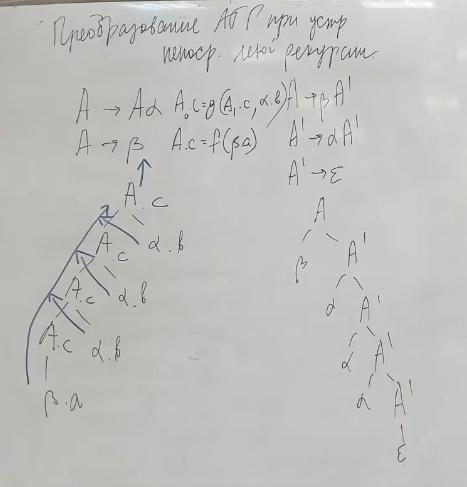 Преобразование АГ при устр
непоср. левой рекурсии.
A → Aα A₀.c=g(A₁.c, α.b) A → βA'
A → β A.c=f(β.a) A' → αA'
A' → ε
A.c A
A.c α.b β A'
A.c α.b α A'
A.c α.b α A'
β.a α A'
ε